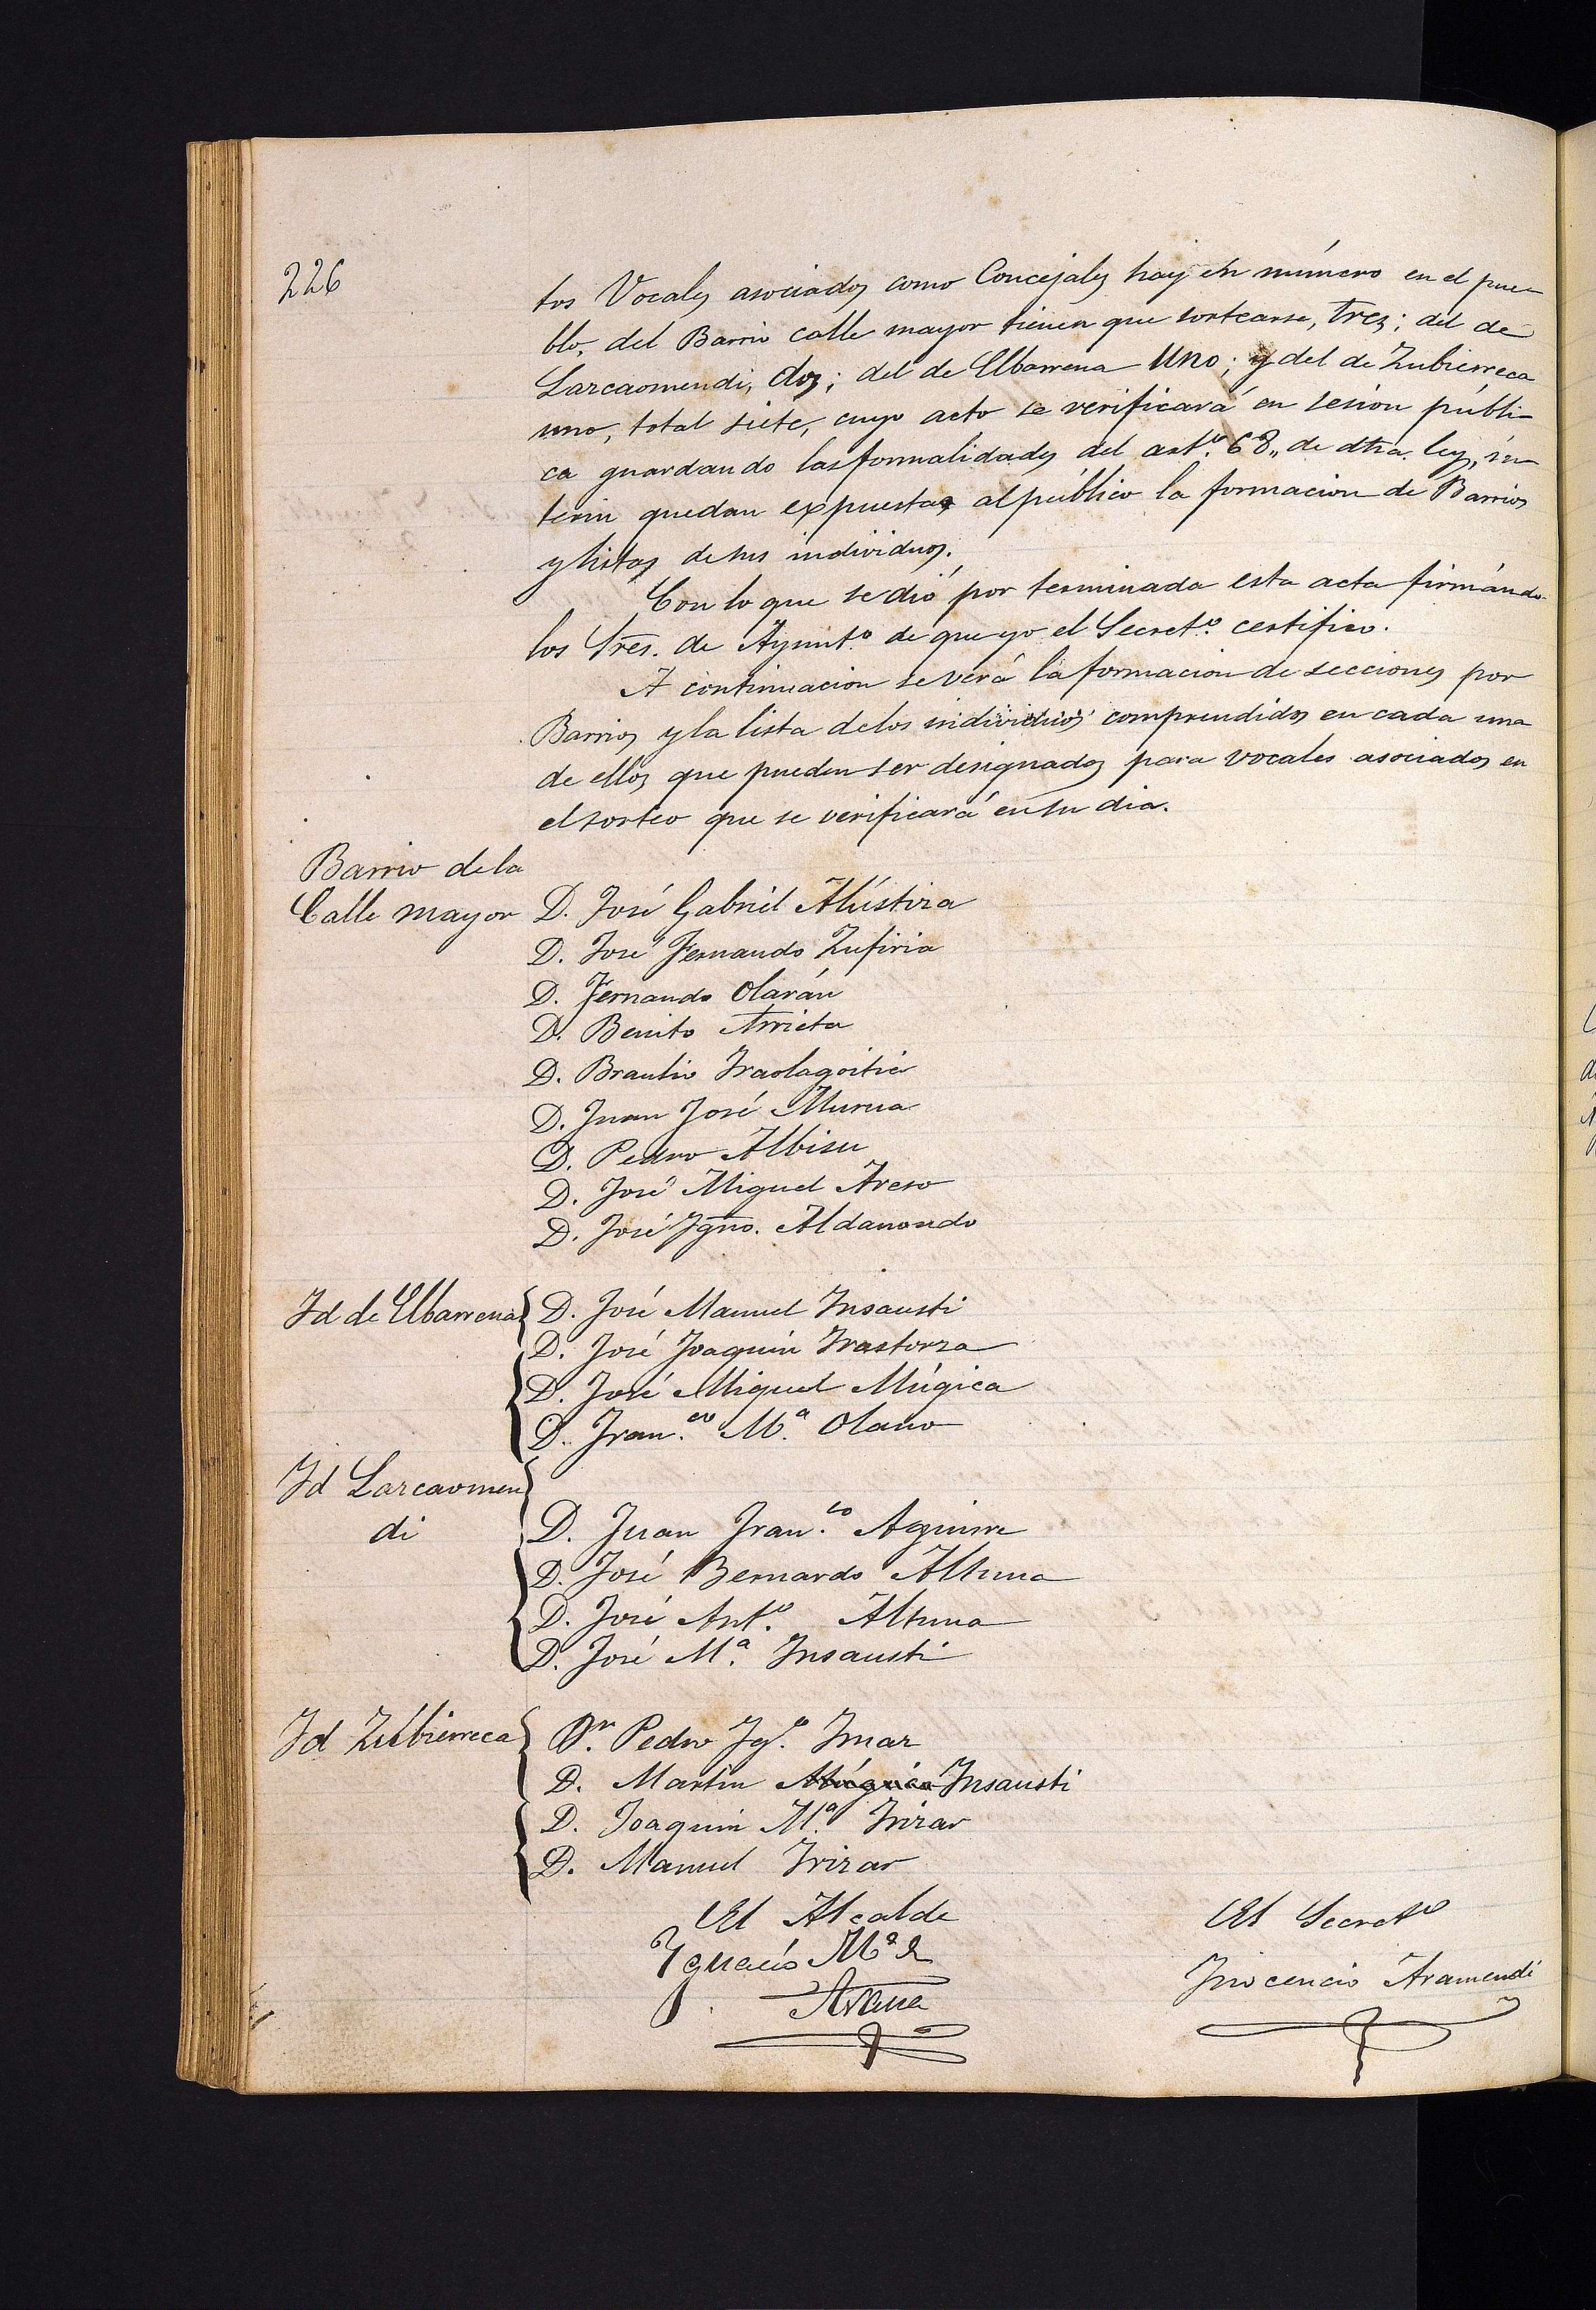 226
tos Vocales asociados como Concejales hay en número en el pue-
blo, del Barrio calle mayor tienen que sortearse, tres; del de
Larcaomendi, dos; del de Elbarrena uno; y del de Zubierreca
uno, total siete, cuyo acto se verificará en sesion públi-
ca guardando las formalidades del artº. 68,, de dha. ley, ín-
terin quedan expuestas al público la formacion de Barrios
y listas de sus individuos.
Con lo que se dió por terminada esta acta firmando
los Sres. de Ayuntº. de que yo el Secretº. certifico.
A continuacion se verá la formacion de secciones por
Barrios y la lista de los individuos comprendidos en cada una
de ellos que pueden ser designados para vocales asociados en
el sorteo que se verificará en su dia.
Barrio de la
Calle mayor D. José Gabriel Alústiza
D. José Fernando Zufiria
D. Fernando Olarán
D. Benito Arrieta
D. Braulio Iraolagoitia
D. Juan José Murua
D. Pedro Albisu
D. José Miguel Areso
D. José Ygno. Aldanondo
Id de Elbarrena D. José Manuel Insausti
D. José Joaquin Irastorza
D. José Miguel Múgica
D. Fran.co M.ª Olano
Id Larcaomen
di D. Juan Fran.co Aguirre
D. José Bernardo Altuna
D. José Antº. Altuna
D. José M.ª Insausti
Id Zubierreca Dn. Pedro Ygº. Imaz
D. Martin Múgica Insausti
D. Joaquin M.ª Irizar
D. Manuel Irizar
El Alcalde
Ygnacio Mª de
Arana
El Secretº
Inocencio Aramendi